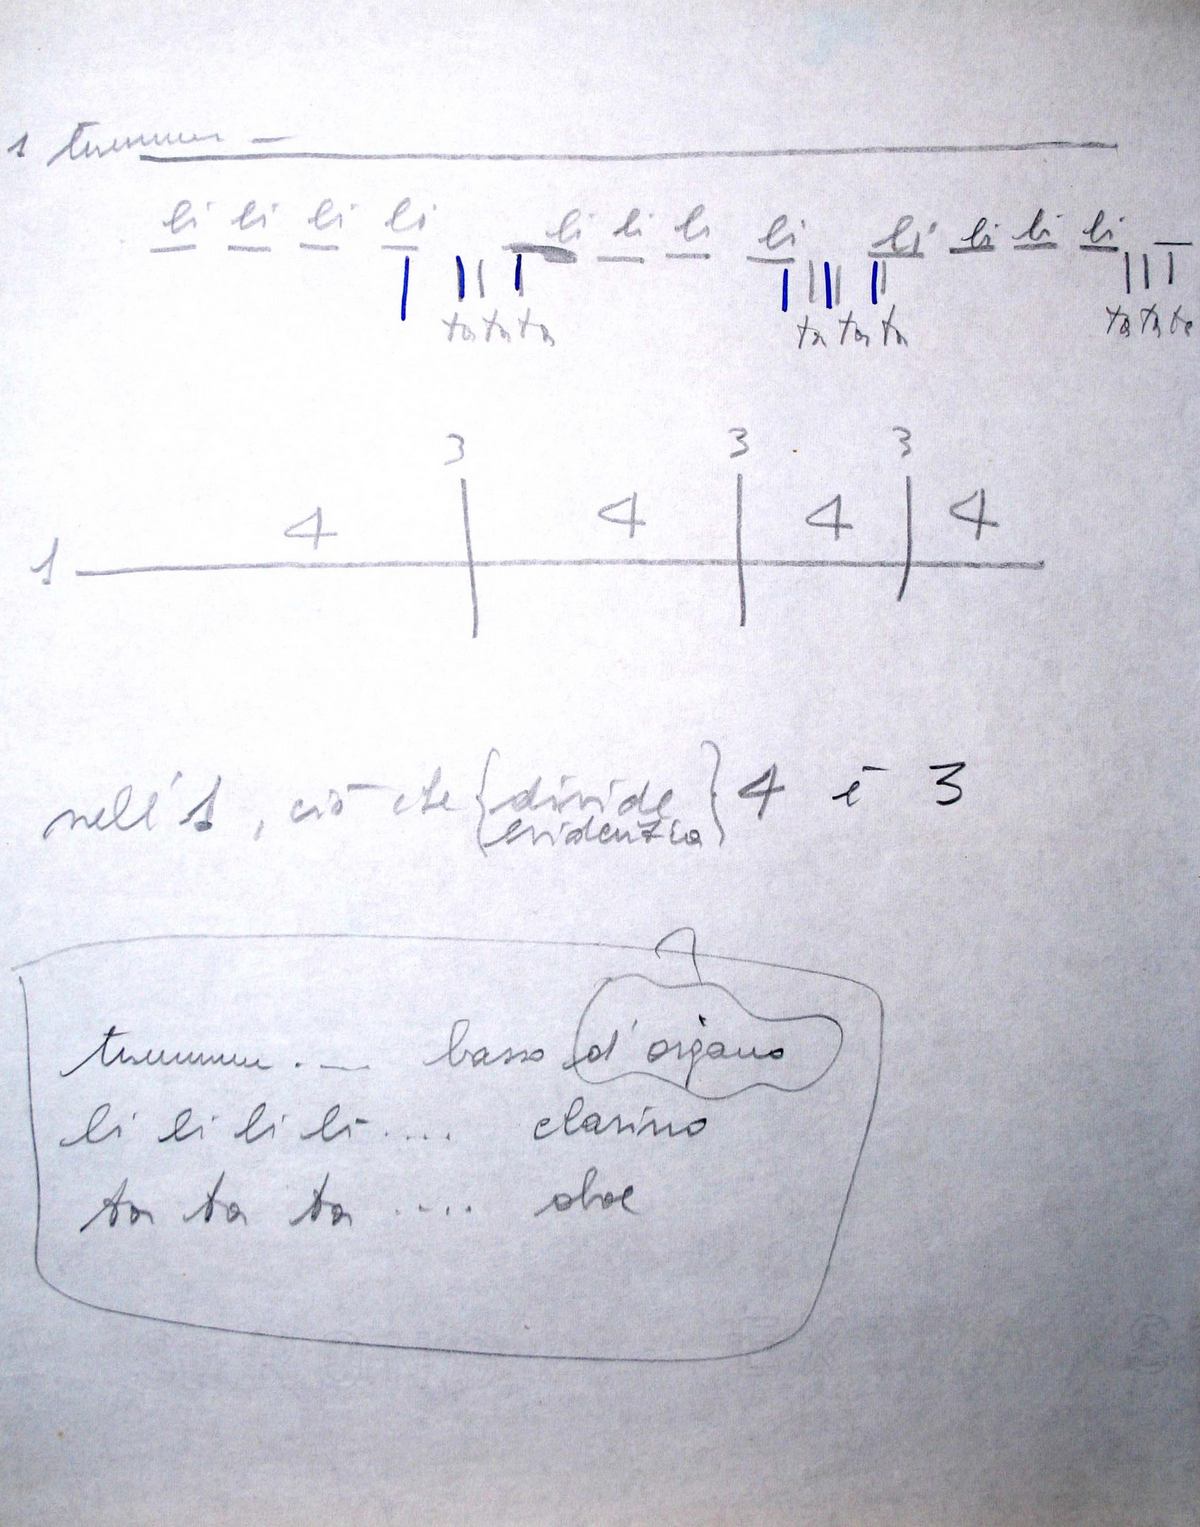 1 tuuuuu —
li li li li li li li li li li li li
ta ta ta ta ta ta ta ta ta
3 3 3
4 4 4 4
1
nell'1, ciò che { divide } 4 è 3
evidenzia
?
tuuuuuu . — basso d'organo
li li li li .... clarino
ta ta ta .... oboe